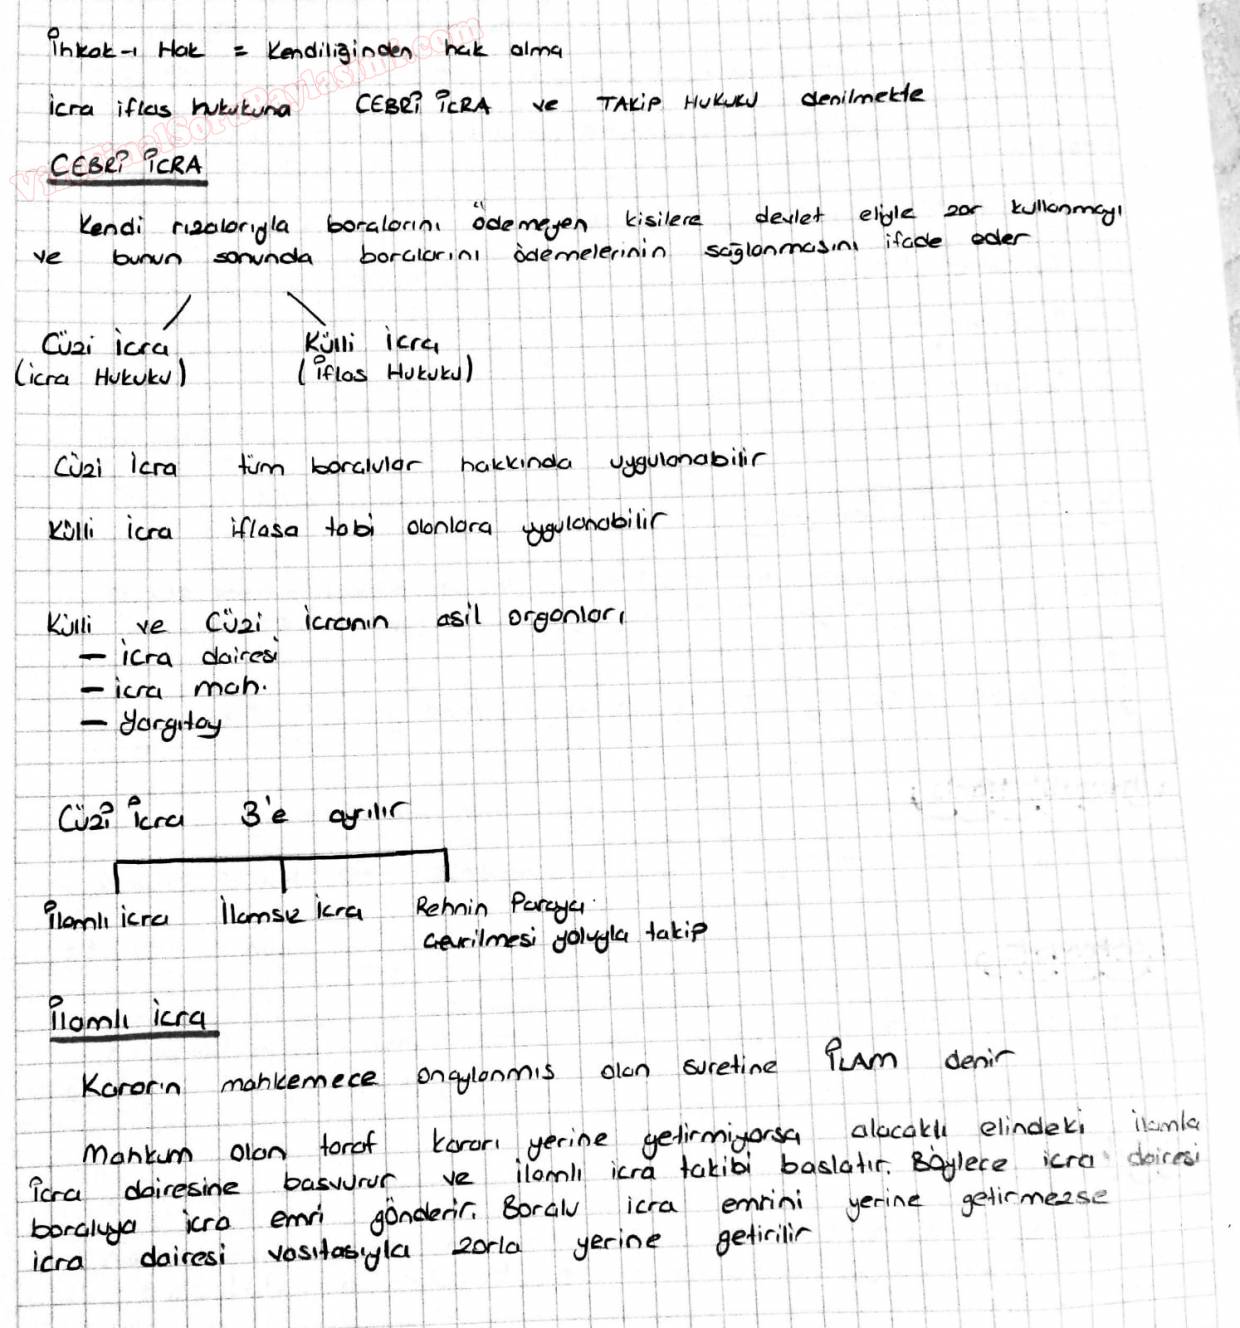 İhkak-ı Hak = Kendiliğinden hak alma
icra iflas hukukuna CEBRİ İCRA ve TAKİP HUKUKU denilmekte
CEBRİ İCRA
Kendi rızalarıyla borclarını ödemeyen kisilere devlet eliyle zor kullanmayı
ve bunun sonunda borclarını ödemelerinin sağlanmasını ifade eder
Cüzi icra Külli icra
(icra Hukuku) (İflas Hukuku)
Cüzi icra tüm borclular hakkında uygulanabilir
Külli icra iflasa tabi olanlara uygulanabilir
Külli ve Cüzi icranın asil organları
- icra dairesi
- icra mah.
- Yargıtay
Cüzi İcra 3'e ayrılır
İlamlı icra İlamsız icra Rehnin Paraya
Cevrilmesi yoluyla takip
İlamlı icra
Kararın mahkemece onaylanmıs olan suretine İLAM denir
Mahkum olan taraf kararı yerine getirmiyorsa alacaklı elindeki ilamla
İcra dairesine basvurur ve ilamlı icra takibi baslatır. Böylece icra dairesi
borcluya icra emri gönderir. Borclu icra emrini yerine getirmezse
icra dairesi vasıtasıyla zorla yerine getirilir